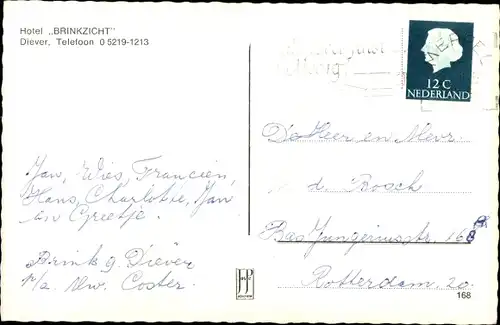 Hotel „BRINKZICHT”
Diever, Telefoon 0 5219-1213
12 C
NEDERLAND
De Heer en Mevr.
d. Bosch
Bas Jungeriusstr. 168
Rotterdam. 20.
Jan, Wies, Francien,
Hans, Charlotte, Jan
en Greetje.
Brink 9. Diever
p/a Mw. Coster.
JP
168